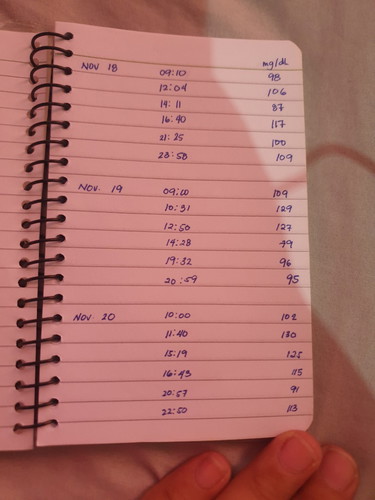 mg/dl
NOV 18 09:10 98
12:04 106
14:11 87
16:40 117
21:25 100
23:58 109
NOV. 19 09:00 109
10:31 129
12:50 127
14:28 79
19:32 96
20:59 95
NOV. 20 10:00 102
11:40 130
15:19 125
16:43 115
20:57 91
22:50 113